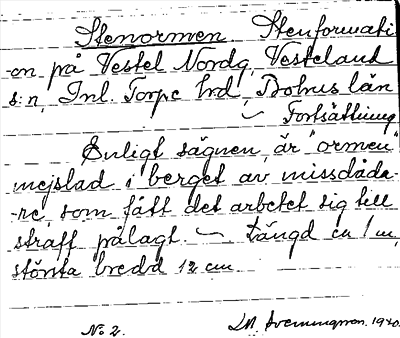 Stenormen. Stenformati-
on på Vestel Nordg, Vesteland
s:n, Inl. Torpe hrd, Bohus län
~ Fortsättning
Enligt sägnen, är "ormen"
mejslad i berget av missdåda-
-re, som fått det arbetet sig till
straff pålagt. ~ Längd ca 1 m,
största bredd 12 cm.
No 2. 1940.